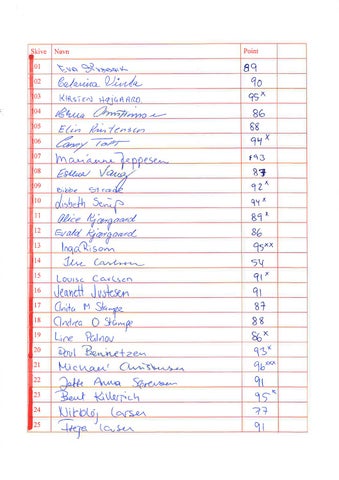 Skive Navn Point
01 Eva 89
02 Caterina 90
03 KIRSTEN HØJGAARD 95x
04 86
05 Elin Kristensen 88
06 Conny Toft 94x
07 Marianne Jeppesen 93
08 Esther Vang 87
09 Bibbe 92x
10 Lisbeth 94x
11 Alice Kjærgaard 89x
12 Evald Kjærgaard 86
13 Inga Risom 95xx
14 Else Carlsen 54
15 Louise Carlsen 91x
16 Jeanett Justesen 91
17 Anita M Stampe 87
18 Andrea O Stampe 88
19 Line 86x
20 Emil Bennetzen 93x
21 Michael Christensen 96xxx
22 Jette Anna Sørensen 91
23 Bent Killerich 95x
24 Nikolaj Larsen 77
25 Freja Larsen 91